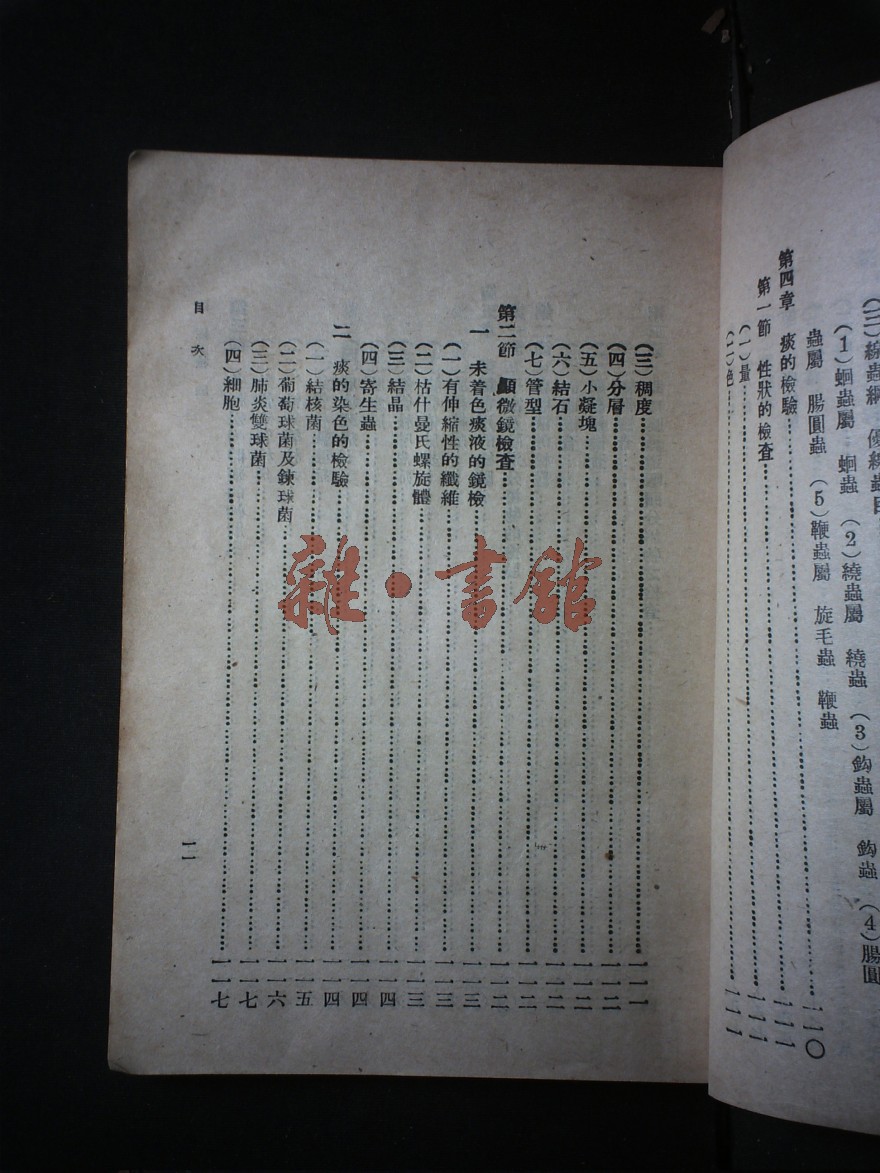 (三)線蟲綱
(1)蛔蟲屬 蛔蟲 (2)繞蟲屬 繞蟲 (3)鈎蟲屬 鈎蟲 (4)腸圓
蟲屬 腸圓蟲 (5)鞭蟲屬 旋毛蟲 鞭蟲……一一〇
第四章 痰的檢驗……一一一
第一節 性狀的檢查……一一一
(一)量……一一一
(二)色……一一一
(三)稠度……一一一
(四)分層……一一二
(五)小凝塊……一一二
(六)結石……一一二
(七)管型……一一二
第二節 顯微鏡檢查……一一二
一 未着色痰液的鏡檢……一一三
(一)有伸縮性的纖維……一一三
(二)枯什曼氏螺旋體……一一三
(三)結晶……一一四
(四)寄生蟲……一一四
二 痰的染色的檢驗……一一四
(一)結核菌……一一五
(二)葡萄球菌及鍊球菌……一一六
(三)肺炎雙球菌……一一七
(四)細胞……一一七
目次
一一
雜·書館